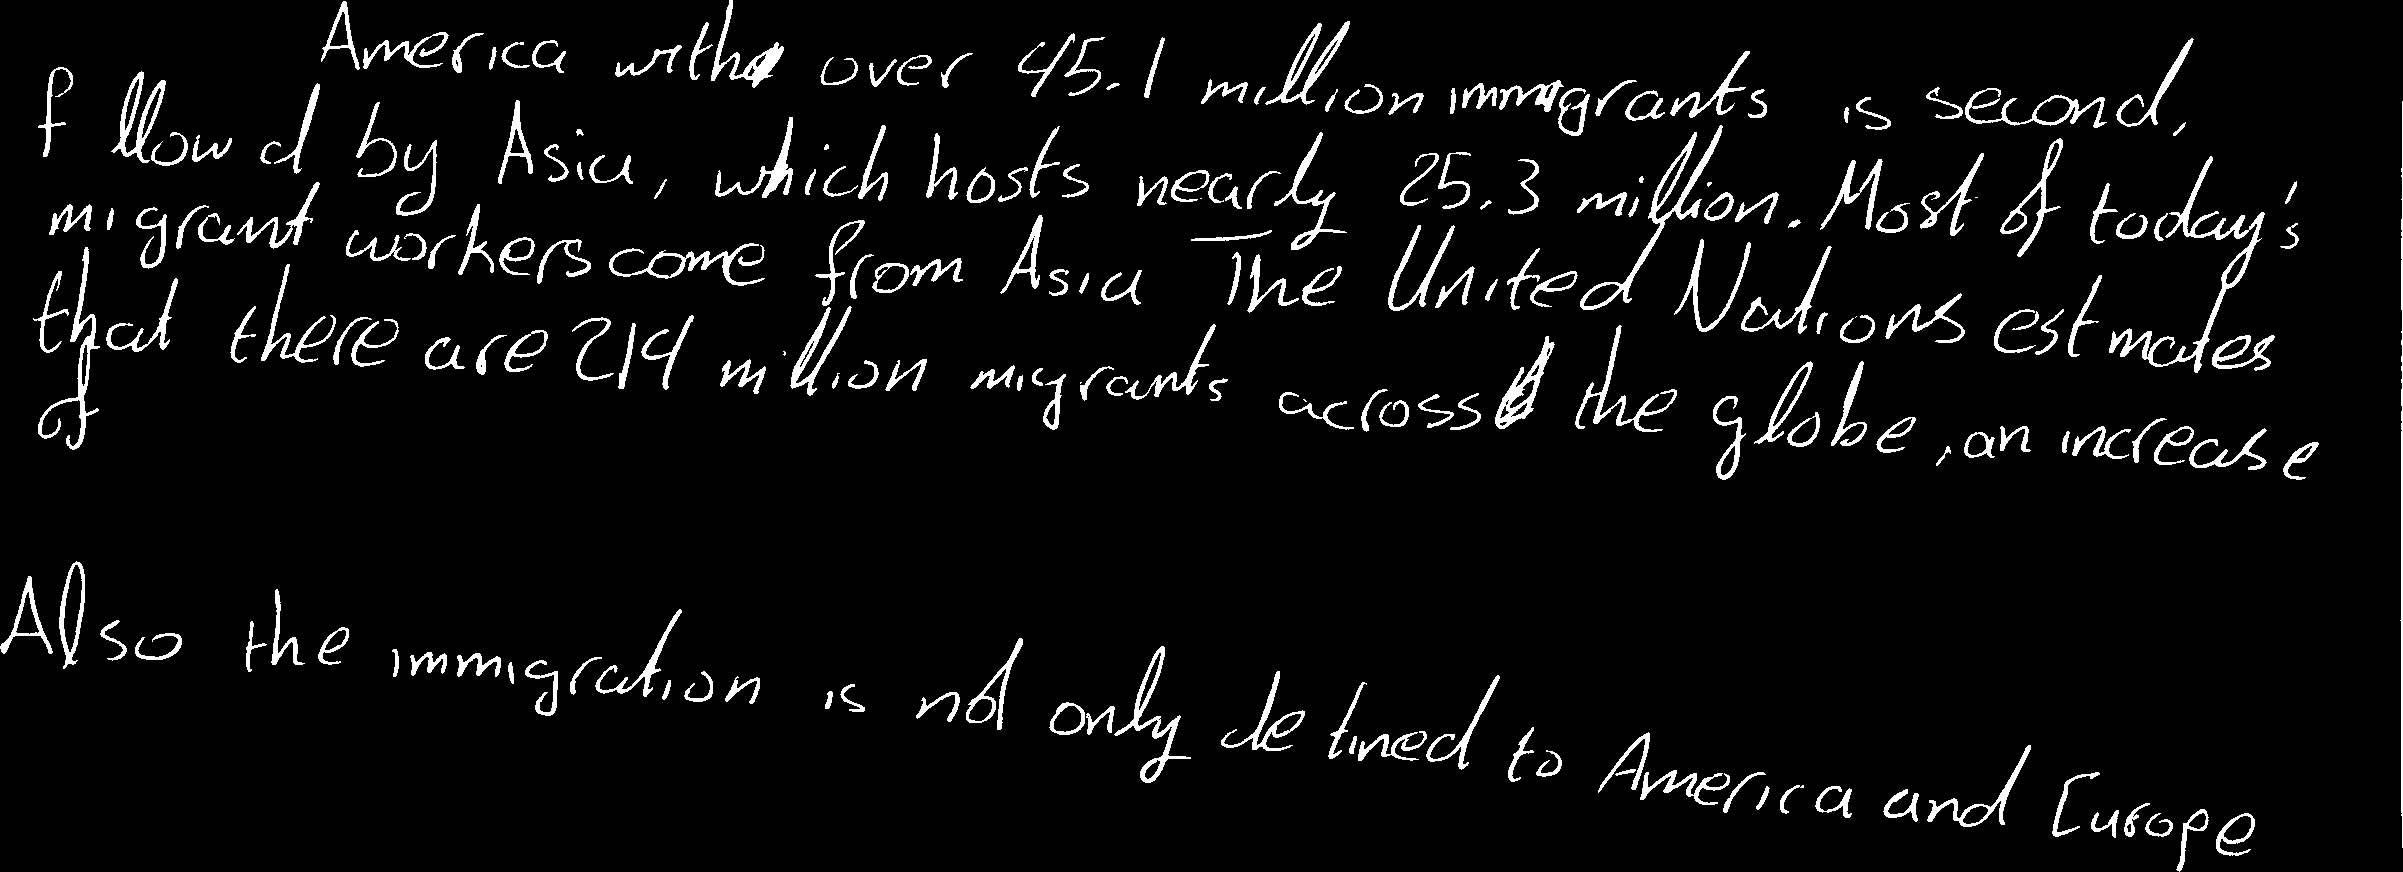 America with over 45.1 million immigrants is second,
f llow d by Asia, which hosts nearly 25.3 million. Most of today's
migrant workers come from Asia The United Nations estmates
that there are 214 million migrants across the globe, an increase
of
Also the immigration is not only detined to America and Europe